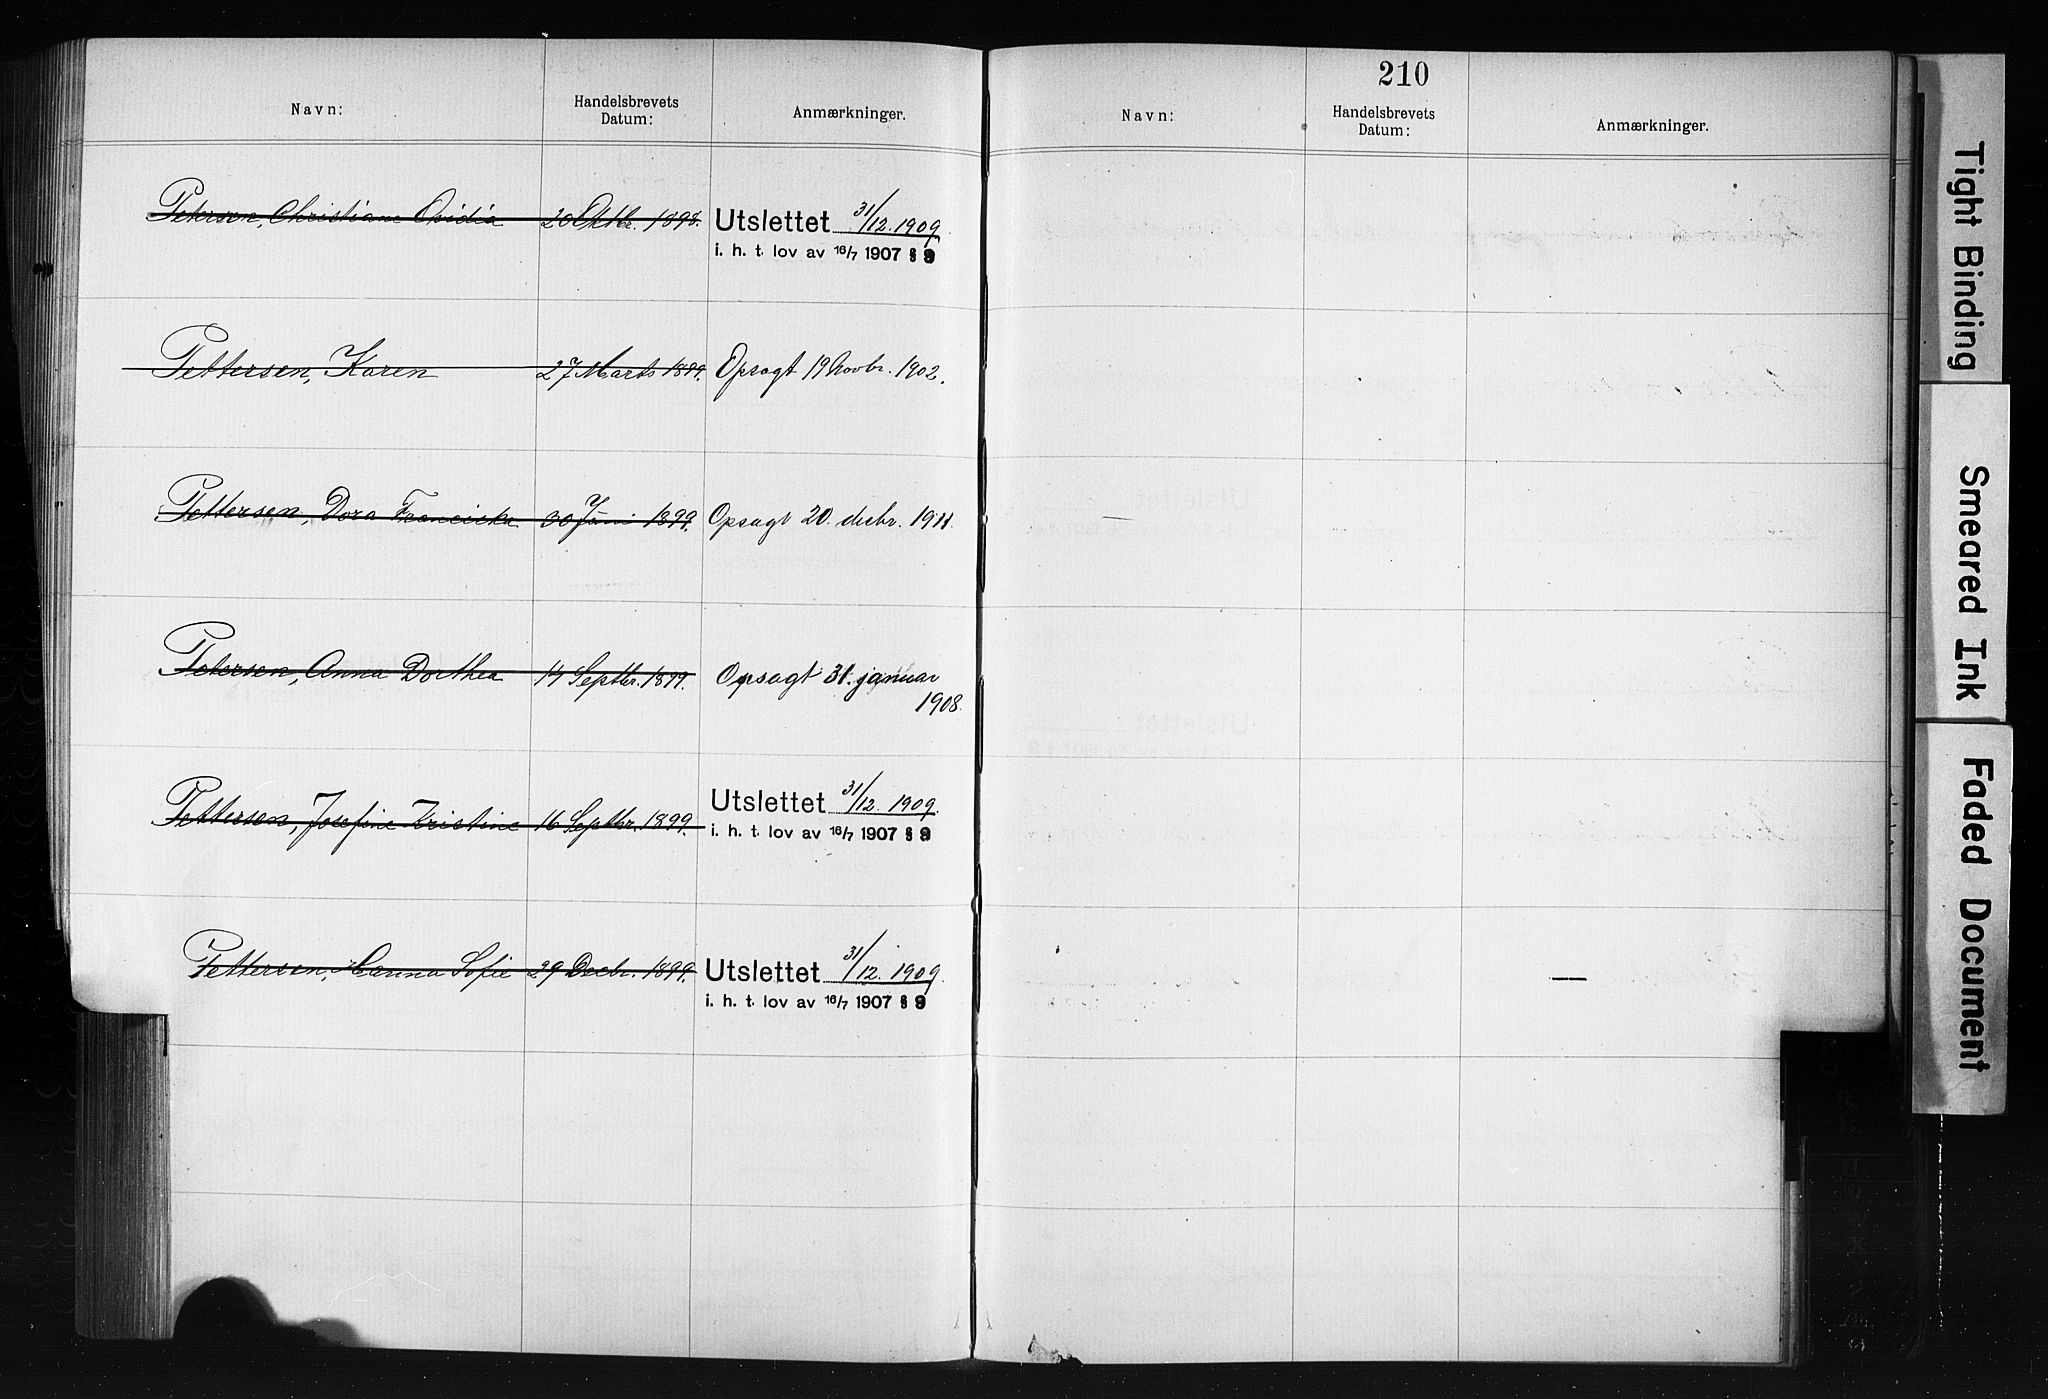 Navn: Handelsbrevets Datum: Anmærkninger.
Petersen, Christiane Ovidia 20 Oktbr. 1898. Utslettet 31/12. 1909
i. h. t. lov av 16/7 1907 § 9
Pettersen, Karen 27 Marts 1899. Opsagt 19 Novbr. 1902.
Pettersen, Dora Franciska 30 Juni 1899. Opsagt 20. decbr. 1911.
Petersen, Anna Dorthea 14 Septbr. 1899. Opsagt 31. januar
1908.
Pettersen, Josefine Kristine 16 Septbr. 1899. Utslettet 31/12. 1909.
i. h. t. lov av 16/7 1907 § 9
Pettersen, Hanna Sofie 29 Decbr. 1899. Utslettet 31/12. 1909.
i. h. t. lov av 16/7 1907 § 9
210
Navn: Handelsbrevets Datum: Anmærkninger.
Tight Binding
Smeared Ink
Faded Document